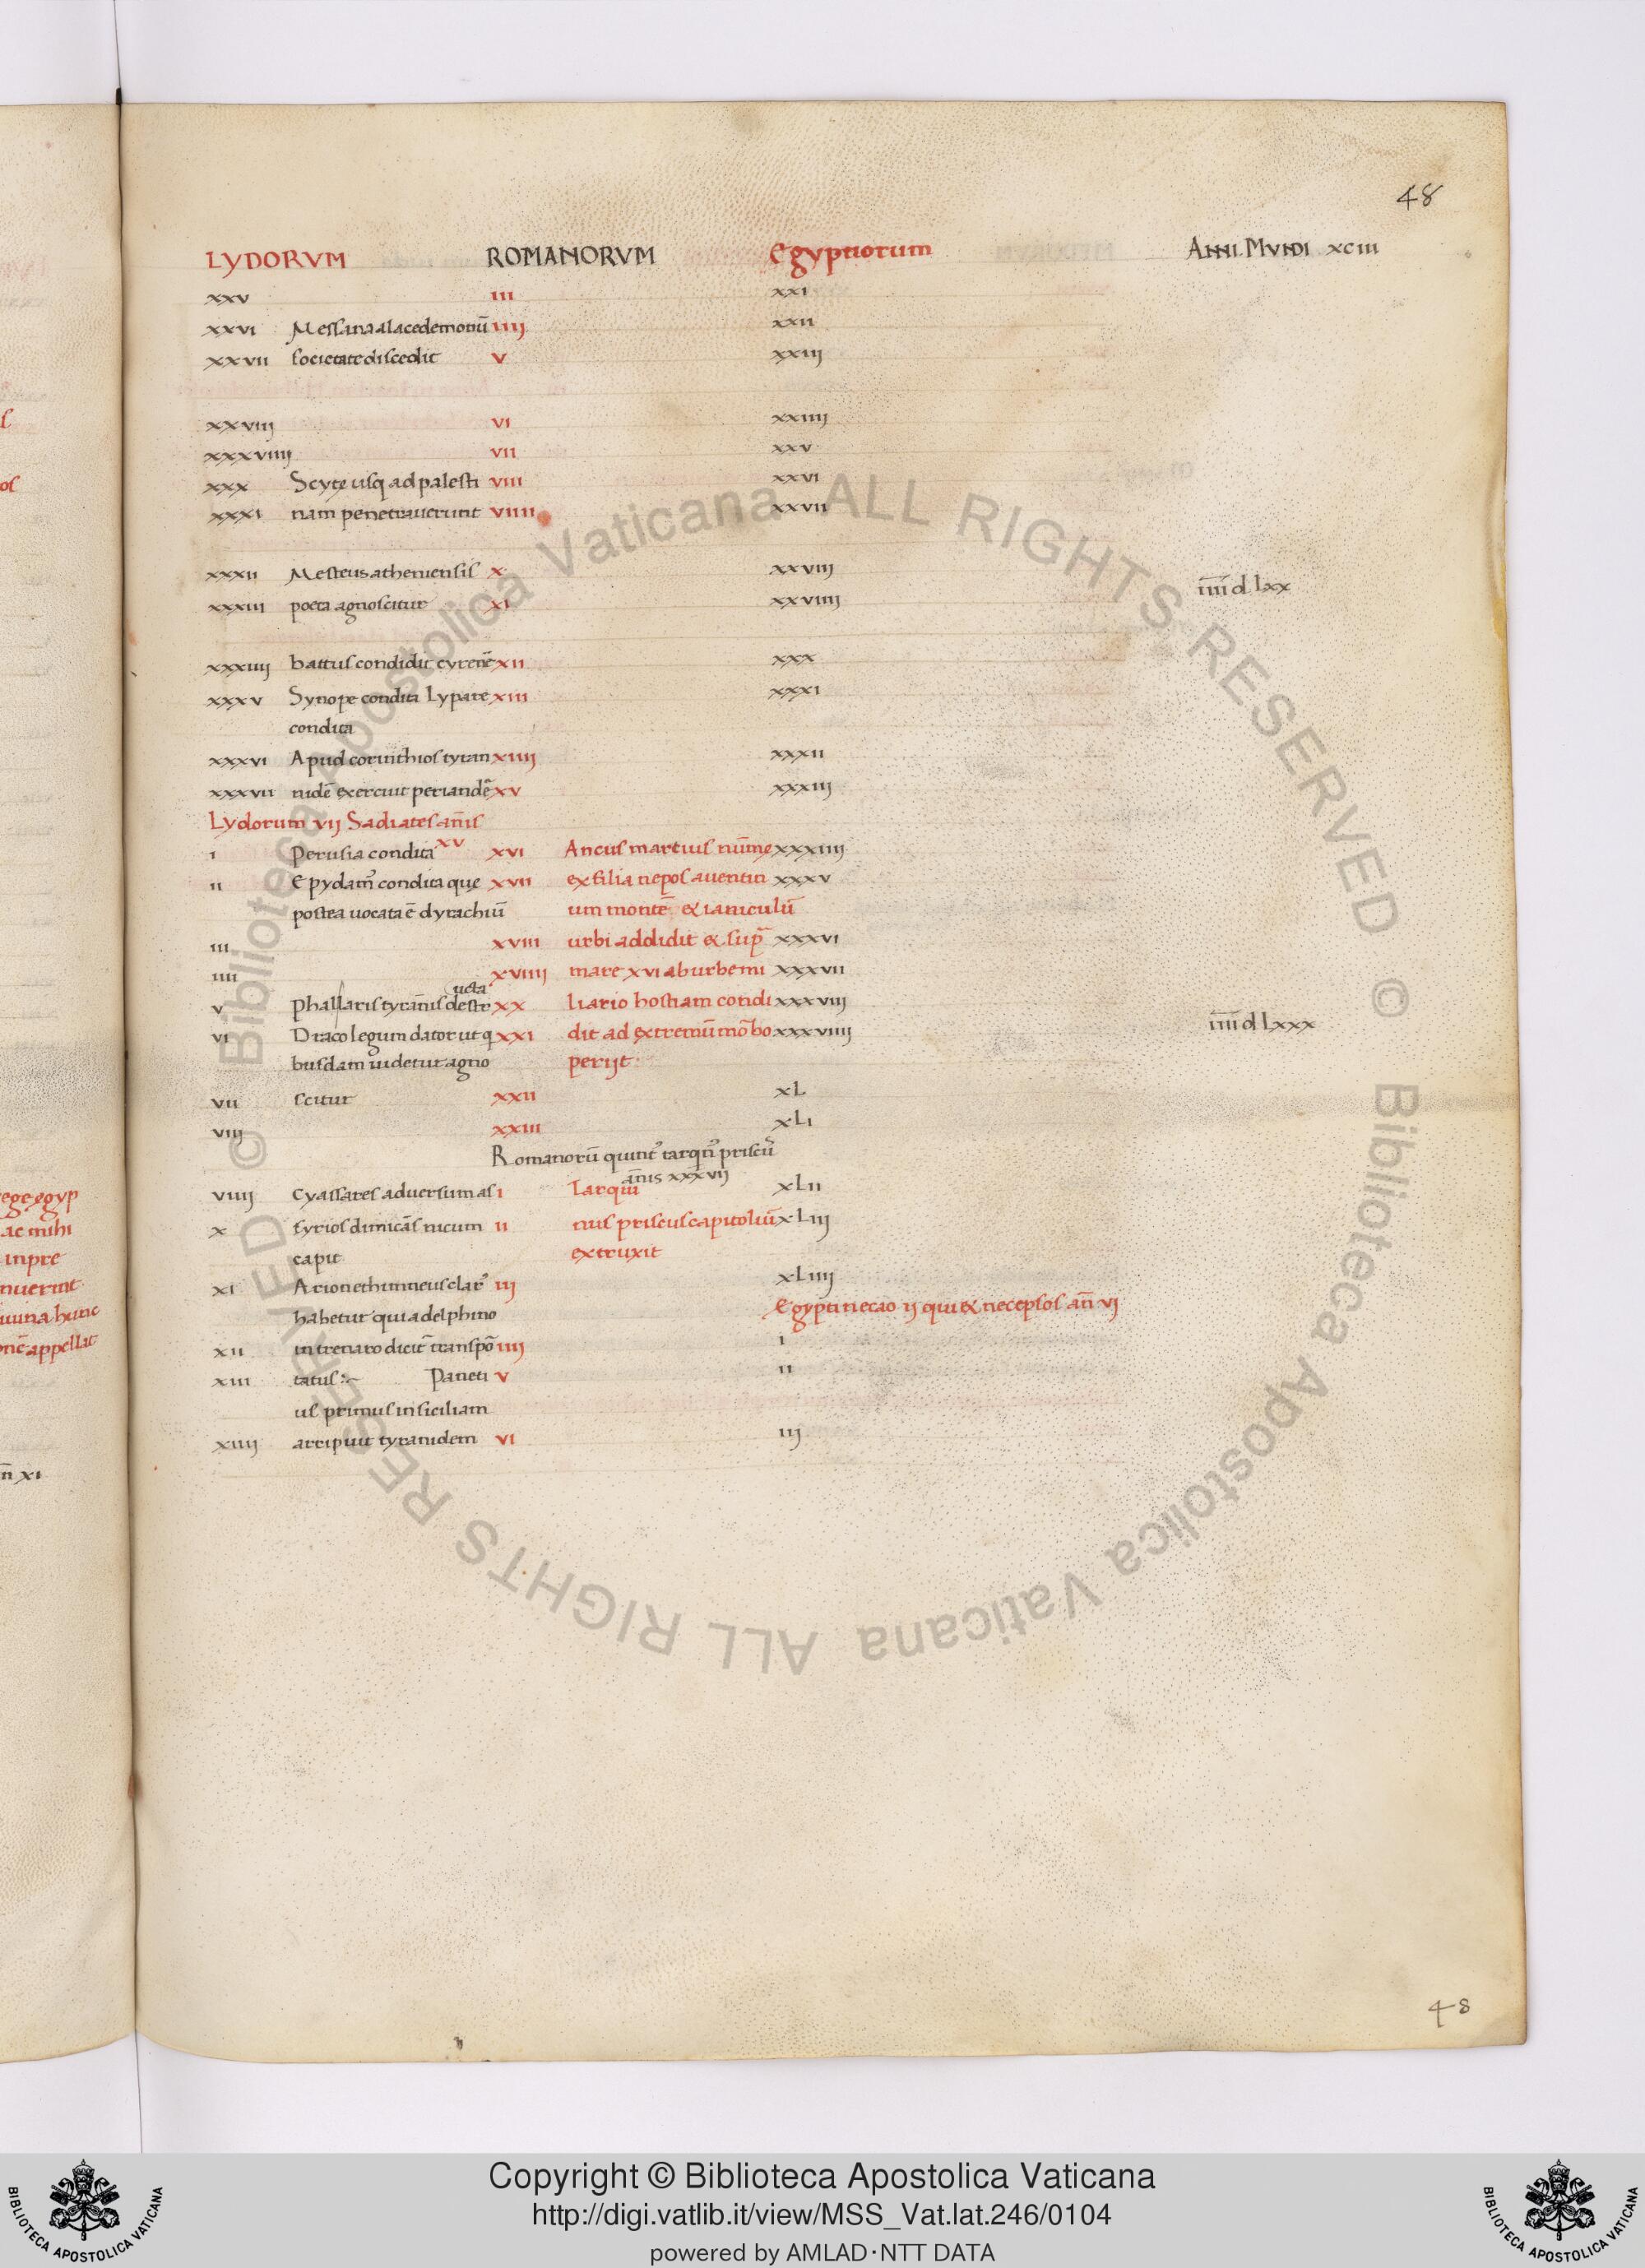 48
LYDORVM ROMANORVM Egyptiorum ANNI MVNDI XCIII
xxv III xxI
xxvI Messana a lacedemoniū IIIj xxII
xxvII societate discedit V xxIIj
xxvIIj VI xxIIIj
xxxvIIIj VII xxv
xxx Scyte usq ad palesti VIII xxvI
xxxI nam penetrauerunt VIIII xxvII
xxxII Mesteus atheniensis X xxvIIj
xxxIII poeta agnoscitur XI xxvIIIj
īīīīd lxx
xxxIIIj battus condidit cyrenē XII xxx
xxxV Synope condita Lypare XIII xxxI
condita
xxxvI Apud corinthios tyran XIIIj xxxII
xxxvII nidē exercuit periandē XV xxxIIj
Lydorum VIj Sadiates annis XV
I Perusia condita XVI Ancus martius nume xxxIIIj
II Epydam condita que XVII ex filia nepos auentin xxxV
postea uocata ē dyrachiū um montē & ianiculū
III XVIII urbi addidit & sup xxxVI
IIII XVIIIj mare xvi ab urbe mi xxxVII
ucta
V phallaris tyrānis destr XX liario hostiam condi xxxVIIj
VI Draco legum dator ut q XXI dit ad extremū mōbo xxxVIIIj
īīīīd lxxx
busdam uidetur agno perijt
VII scitur XXII XL
VIIj XXIII XLI
Romanorū quint tarqn priscu
ānis xxxVIj
VIIIj Cyassares aduersum as I Tarqui XLII
X syrios dimicās nicum II nius priscus capitoliū XLIIj
capit extruxit
XI Arion ethimneus clar IIj XLIIIj
habetur qui a delphino Egypti necao Ij qui & necepsos an VI
XII in trenaro dicit transpo IIIj I
XIII tatus Paneti V II
us primus in siciliam
XIIIj arripuit tyranidem VI IIj
48
ege egyp
ac mihi
inpre
nuerint
una hunc
appellat
n XI
© Biblioteca Apostolica Vaticana ALL RIGHTS RESERVED © Biblioteca Apostolica Vaticana ALL RIGHTS RESERVED
Copyright © Biblioteca Apostolica Vaticana
http://digi.vatlib.it/view/MSS_Vat.lat.246/0104
powered by AMLAD·NTT DATA
BIBLIOTECA APOSTOLICA VATICANA
BIBLIOTECA APOSTOLICA VATICANA